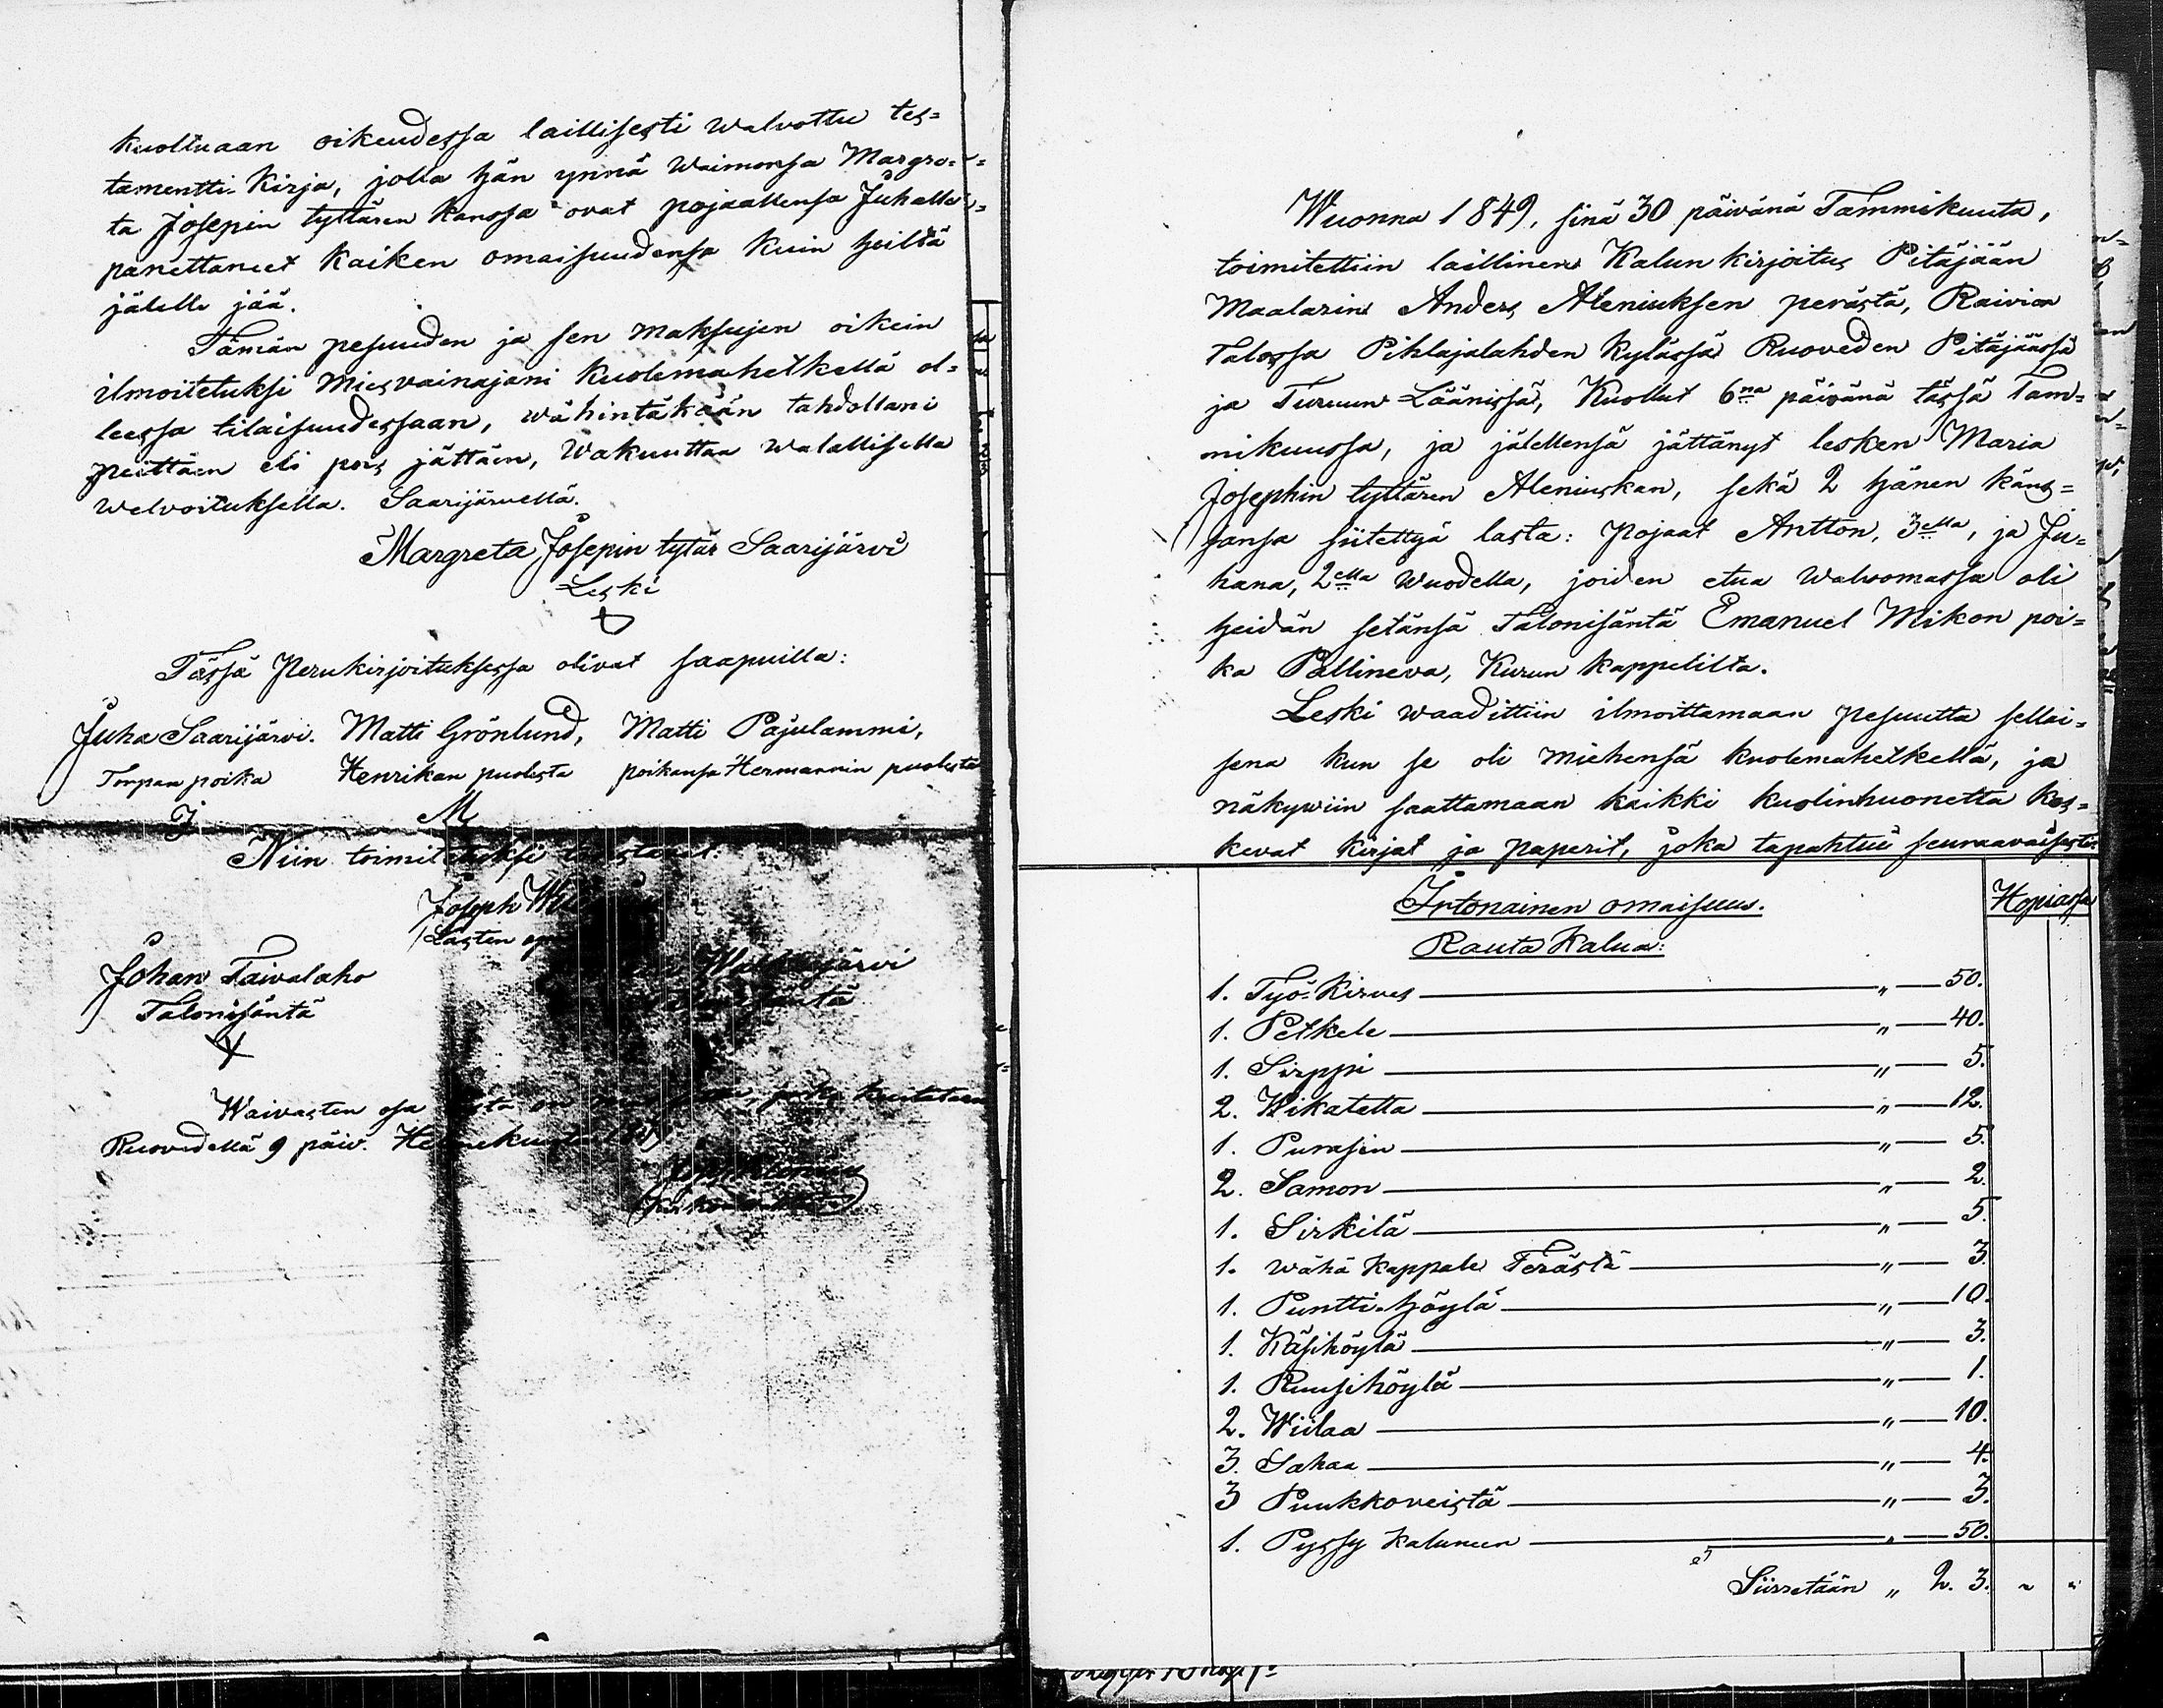 kuoltuaan oikeudessa laillisesti walvottu tes=
tamentti-Kirja, jolla hän ynnä Waimonsa Margre=
ta Josepin tyttären kanssa ovat pojaallensa Juhalle
panettaneet Kaiken omaisuudensa kuin heiltä
jälelle jää.
Tämän pesuuden ja sen maksujen oikein
ilmoitetuksi Miesvainajani Kuolemahetkellä ol=
leessa tilaisuudessaan, wähintäkään tahdollani
peittäen eli pois jättäin, Wakuuttaa walallisella
welvoituksella. Saarijärvellä.
Margreta Josepin tytär Saarijärvi
Leski
Tässä Perukirjoituksessa olivat saapuilla:
Juha Saarijärvi. Matti Grönlund, Matti Pajulammi,
Torpan poika Henrikan puolesta poikansa Hermannin puolesta
J M
Niin toimitetuksi
Joseph
Lasten
Johan Taivalaho
Talonisäntä
Waivasten osa on
Ruovedellä 9 päiv.
Wuonna 1849, sinä 30 päivänä Tammikuuta,
toimitettiin laillinen Kalun kirjoitus Pitäjään
Maalarin Anders Aleniuksen perästä, Raivion
Talossa Pihlajalahden Kylässä Ruoveden Pitäjäässä
ja Turuun Läänissä, Kuollut 6na päivänä tässä Tam=
mikuussa, ja jälellensä jättänyt lesken Maria
Josephin tyttären Aleniuskan, sekä 2 hänen käns=
sansa siitettyä lasta: Pojaat Antton, 3ella, ja Ju=
hana, 2ella wuodella, joiden etua walvomassa oli
heidän setänsä Talonisäntä Emanuel Mikon poi=
ka Pallineva, Kurun kappelilta.
Leski waadittiin ilmoittamaan pesuutta sellai=
sena kun se oli miehensä kuolemahetkellä, ja
näkywiin saattamaan kaikki kuolinhuonetta kos=
kevat kirjat ja paperit, joka tapahtui seuraavaisesti:
Irtonainen omaisuus. Hopiassa
Rauta Kalua:
1. Työ-Kirves " 50.
1. Petkele " 40.
1. Sirppi " 5.
2. Wikatetta " 12.
1. Purasin " 5.
2. Samon " 2.
1. Sirkilä " 5.
1. wähä kappale Terästä " 3.
1. Puntti-höylä " 10.
1. Käsihöylä " 3.
1. Ruusihöylä " 1.
2. Wiilaa " 10.
3. Sahaa " 4.
3 Puukkoveistä " 3.
1. Pyssy kaluneen " 50.
Siirretään " 2. 3. " "